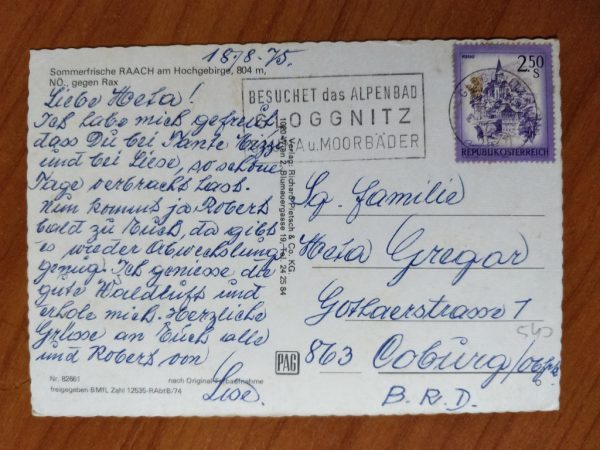 18.8.75.
Sommerfrische RAACH am Hochgebirge, 804 m,
NÖ., gegen Rax
Liebe Heta!
Ich habe mich gefreut
dass Du bei Tante Mizzi
und bei Liese, so schöne
Tage verbracht hast.
Nun kommt ja Robert
bald zu Euch, da gibt
es wieder Abwechslung
genug. Ich geniesse die
gute Waldluft und
erhole mich. Herzliche
Grüsse an Euch alle
und Robert von
Lise.
Nr. 82661
nach Original-Farbaufnahme
freigegeben BMfL Zahl 12535-RAbtB/74
Verlag: Richard Pietsch & Co. KG.
1020 Wien 2, Blumauergasse 19, Tel. 24 25 84
PAG
BESUCHET das ALPENBAD
GLOGGNITZ
u. MOORBÄDER
2.50
S
REPUBLIK ÖSTERREICH
Sg. Familie
Heta Gregor
Gothaerstrasse 7
540
863 Coburg/Obfr.
B.R.D.